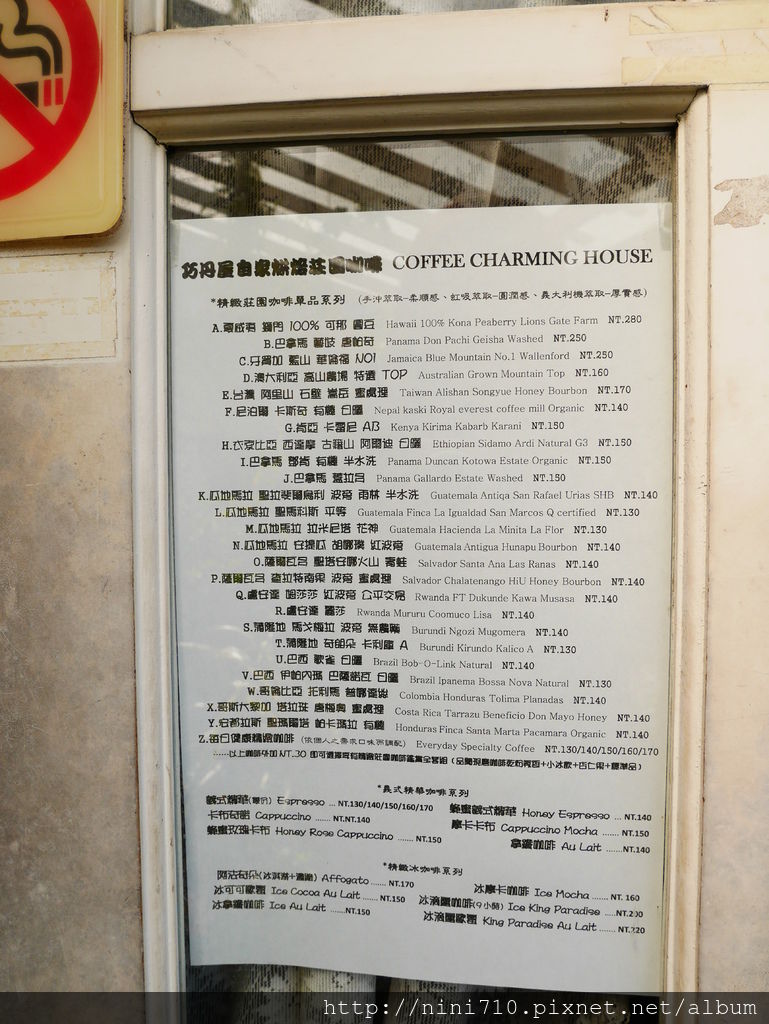 巧丹屋自家烘焙莊園咖啡 COFFEE CHARMING HOUSE
*精緻莊園咖啡單品系列 (手沖萃取-柔順感、虹吸萃取-圓潤感、義大利機萃取-厚實感)
A.夏威夷 獅門 100% 可那 圓豆 Hawaii 100% Kona Peaberry Lions Gate Farm NT.280
B.巴拿馬 藝妓 唐帕奇 Panama Don Pachi Geisha Washed NT.250
C.牙買加 藍山 華倫福 NO1 Jamaica Blue Mountain No.1 Wallenford NT.250
D.澳大利亞 高山農場 特選 TOP Australian Grown Mountain Top NT.160
E.台灣 阿里山 石壁 嵩岳 蜜處理 Taiwan Alishan Songyue Honey Bourbon NT.170
F.尼泊爾 卡斯奇 有機 日曬 Nepal kaski Royal everest coffee mill Organic NT.140
G.肯亞 卡羅尼 AB Kenya Kirima Kabarb Karani NT.150
H.衣索比亞 西達摩 古籍山 阿爾迪 日曬 Ethiopian Sidamo Ardi Natural G3 NT.150
I.巴拿馬 鄧肯 有機 半水洗 Panama Duncan Kotowa Estate Organic NT.150
J.巴拿馬 蓋拉多 Panama Gallardo Estate Washed NT.150
K.瓜地馬拉 聖拉斐爾烏利 波旁 雨林 半水洗 Guatemala Antiqa San Rafael Urias SHB NT.140
L.瓜地馬拉 聖馬科斯 平等 Guatemala Finca La Igualdad San Marcos Q certified NT.130
M.瓜地馬拉 拉米尼塔 花神 Guatemala Hacienda La Minita La Flor NT.130
N.瓜地馬拉 安提瓜 胡娜璞 紅波旁 Guatemala Antigua Hunapu Bourbon NT.140
O.薩爾瓦多 聖塔安娜火山 青蛙 Salvador Santa Ana Las Ranas NT.140
P.薩爾瓦多 查拉特南果 波旁 蜜處理 Salvador Chalatenango HiU Honey Bourbon NT.140
Q.盧安達 姆莎莎 紅波旁 公平交易 Rwanda FT Dukunde Kawa Musasa NT.140
R.盧安達 麗莎 Rwanda Mururu Coomuco Lisa NT.140
S.蒲隆地 馬戈梅拉 波旁 無農藥 Burundi Ngozi Mugomera NT.140
T.蒲隆地 奇朗朵 卡利國 A Burundi Kirundo Kalico A NT.130
U.巴西 歌雀 日曬 Brazil Bob-O-Link Natural NT.140
V.巴西 伊帕內瑪 巴薩諾瓦 日曬 Brazil Ipanema Bossa Nova Natural NT.130
W.哥倫比亞 托利馬 普娜達斯 Colombia Honduras Tolima Planadas NT.140
X.哥斯大黎加 塔拉珠 唐梅奧 蜜處理 Costa Rica Tarrazu Beneficio Don Mayo Honey NT.140
Y.宏都拉斯 聖瑪爾塔 帕卡瑪拉 有機 Honduras Finca Santa Marta Pacamara Organic NT.140
Z.每日健康精選咖啡 (依個人之需求口味而調配) Everyday Specialty Coffee NT.130/140/150/160/170
......以上咖啡外加NT.30 即可選擇
*義式精華咖啡系列
義式精華(單份) Espresso ... NT.130/140/150/160/170 蜂蜜義式精華 Honey Espresso ... NT.140
卡布奇諾 Cappuccino ....... NT.NT.140 摩卡卡布 Cappuccino Mocha ....... NT.150
蜂蜜玫瑰卡布 Honey Rose Cappuccino ....... NT.150 拿鐵咖啡 Au Lait ......NT.140
*精緻冰咖啡系列
阿法奇朵(冰淇淋+濃縮) Affogato ....... NT.170 冰摩卡咖啡 Ice Mocha ....... NT. 160
冰可可歐蕾 Ice Cocoa Au Lait ....... NT.150 冰滴咖啡(9小時) Ice King Paradise .....NT.200
冰拿鐵咖啡 Ice Au Lait ......NT.150 冰滴歐蕾 King Paradise Au Lait ....... NT.220
http://nini710.pixnet.net/album